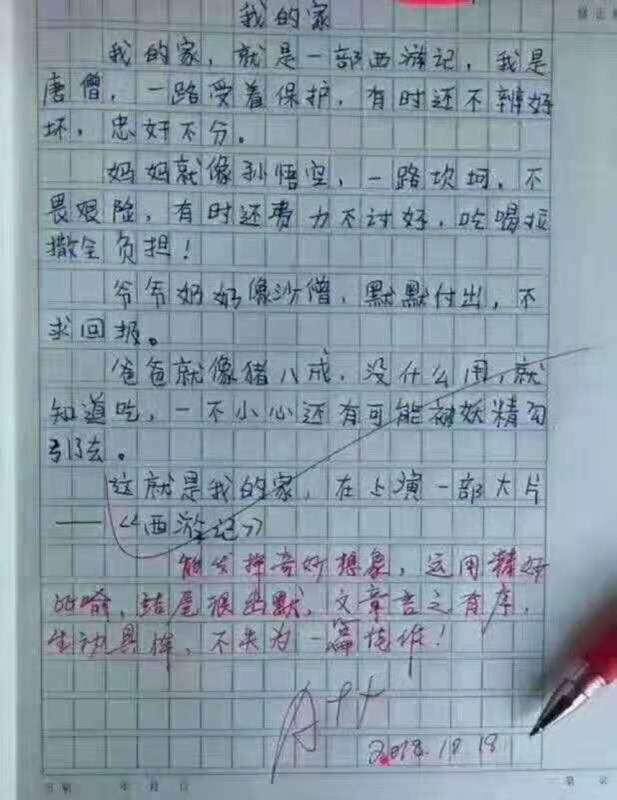 我的家
我的家，就是一部西游记，我是
唐僧，一路受着保护，有时还不辨好
坏，忠奸不分。
妈妈就像孙悟空，一路坎坷，不
畏艰险，有时还费力不讨好，吃喝拉
撒全负担！
爷爷奶奶像沙僧，默默付出，不
求回报。
爸爸就像猪八戒，没什么用，就
知道吃，一不小心还有可能被妖精勾
引去。
这就是我的家，在上演一部大片
——《西游记》
能发挥奇妙想象，运用精妙
比喻，结尾很幽默，文章言之有序，
生动具体，不失为一篇佳作！
A++
2018.10.18
年 月 日